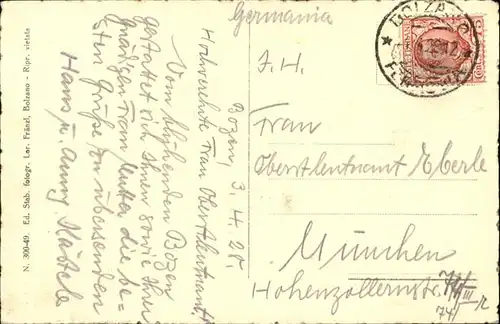 N. 300-49. Ed. Stab. fotogr. Lor. Fränzl, Bolzano - Ripr. vietata
Germania
BOLZANO
Bozen, 3. 4. 28.
Hochverehrte Frau Oberstleutnant!
Vom blühenden Bozen
gestattet sich Ihnen sowie Ihrer
gnädigen Frau Mutter die be-
sten Grüße zu übersenden
Hans u. Anny
I. H.
Frau
Oberstleutnant Eberle
München
Hohenzollernstr.
74